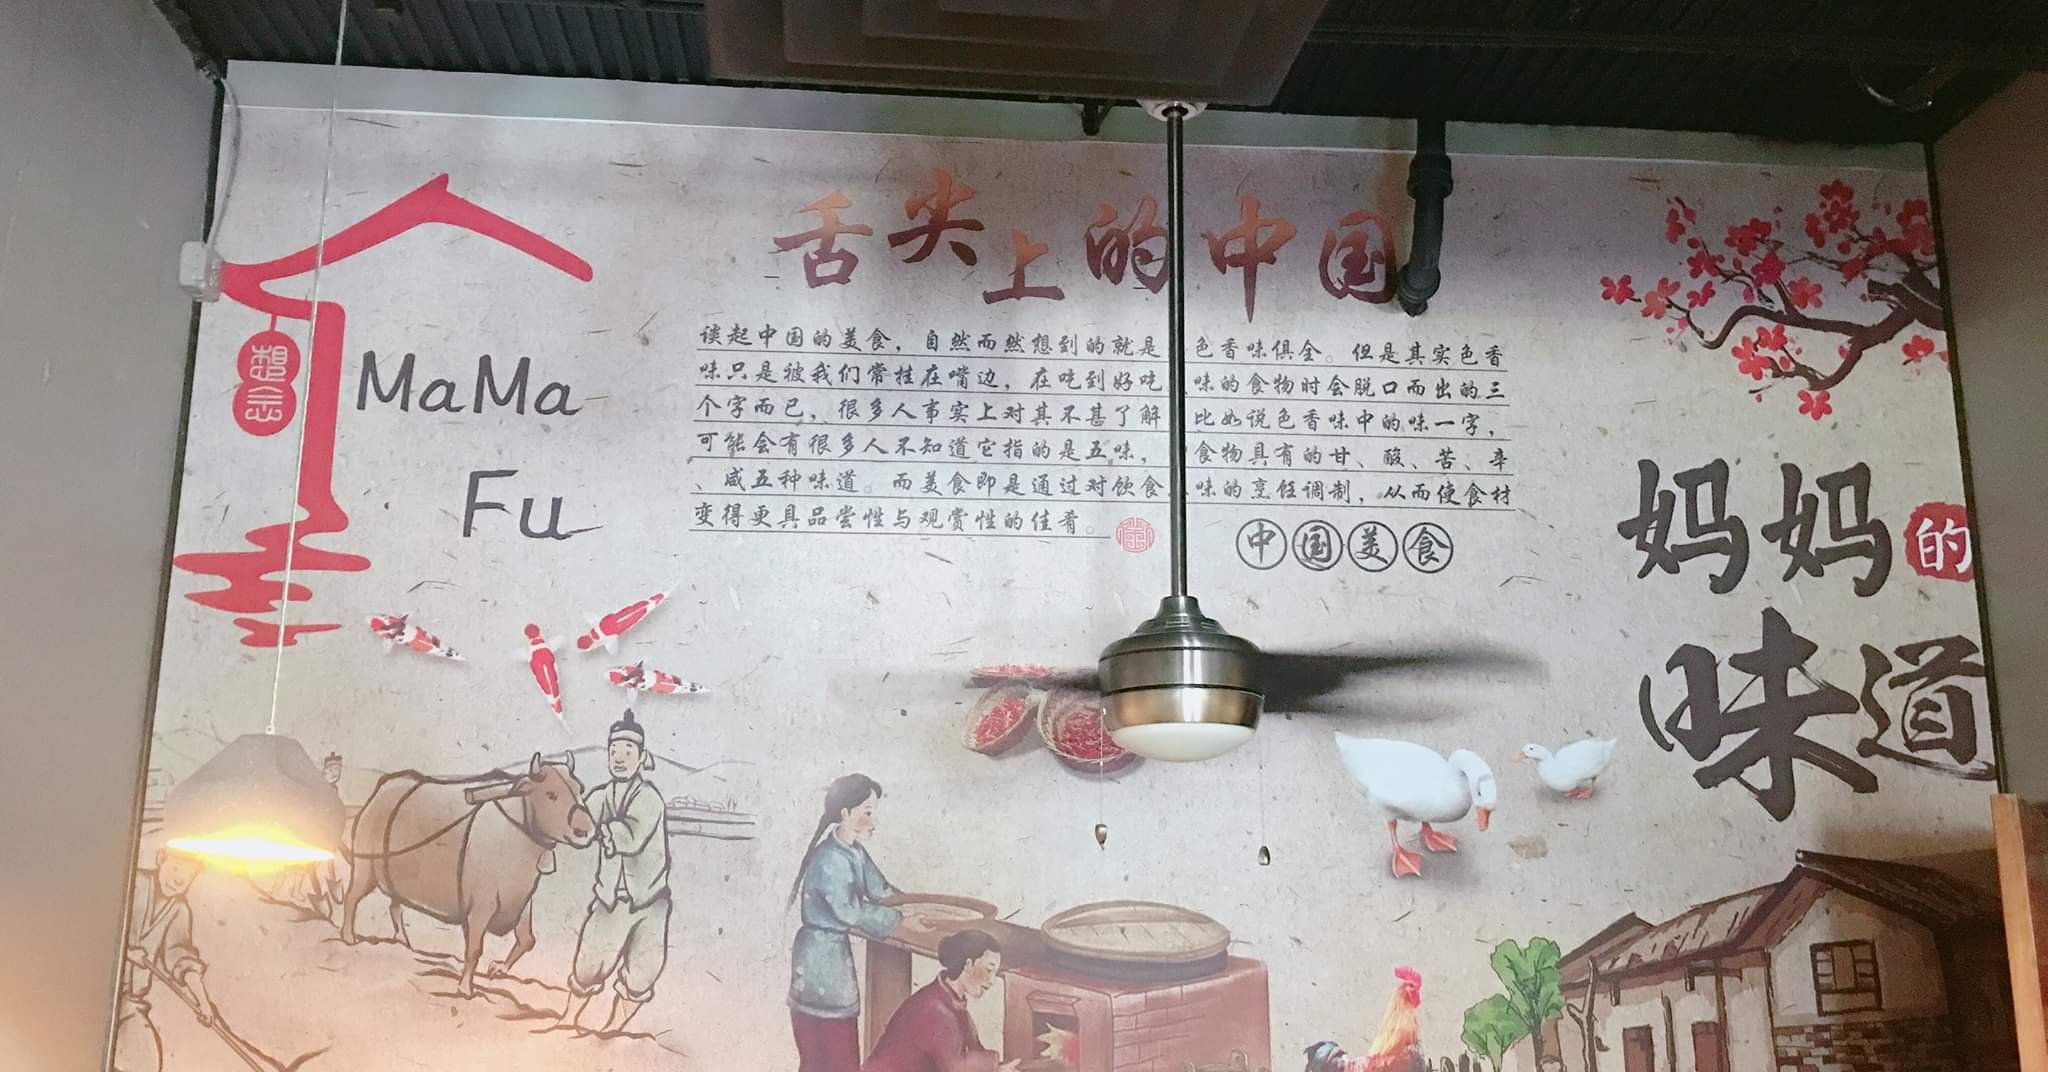 舌尖上的中国
想念
MaMa
Fu
谈起中国的美食，自然而然想到的就是 色香味俱全。但是其实色香
味只是被我们常挂在嘴边，在吃到好吃 味的食物时会脱口而出的三
个字而已，很多人事实上对其不甚了解 比如说色香味中的味一字，
可能会有很多人不知道它指的是五味， 食物具有的甘、酸、苦、辛
、咸五种味道。而美食即是通过对饮食 味的烹饪调制，从而使食材
变得更具品尝性与观赏性的佳肴。
中国美食
妈妈的
味道